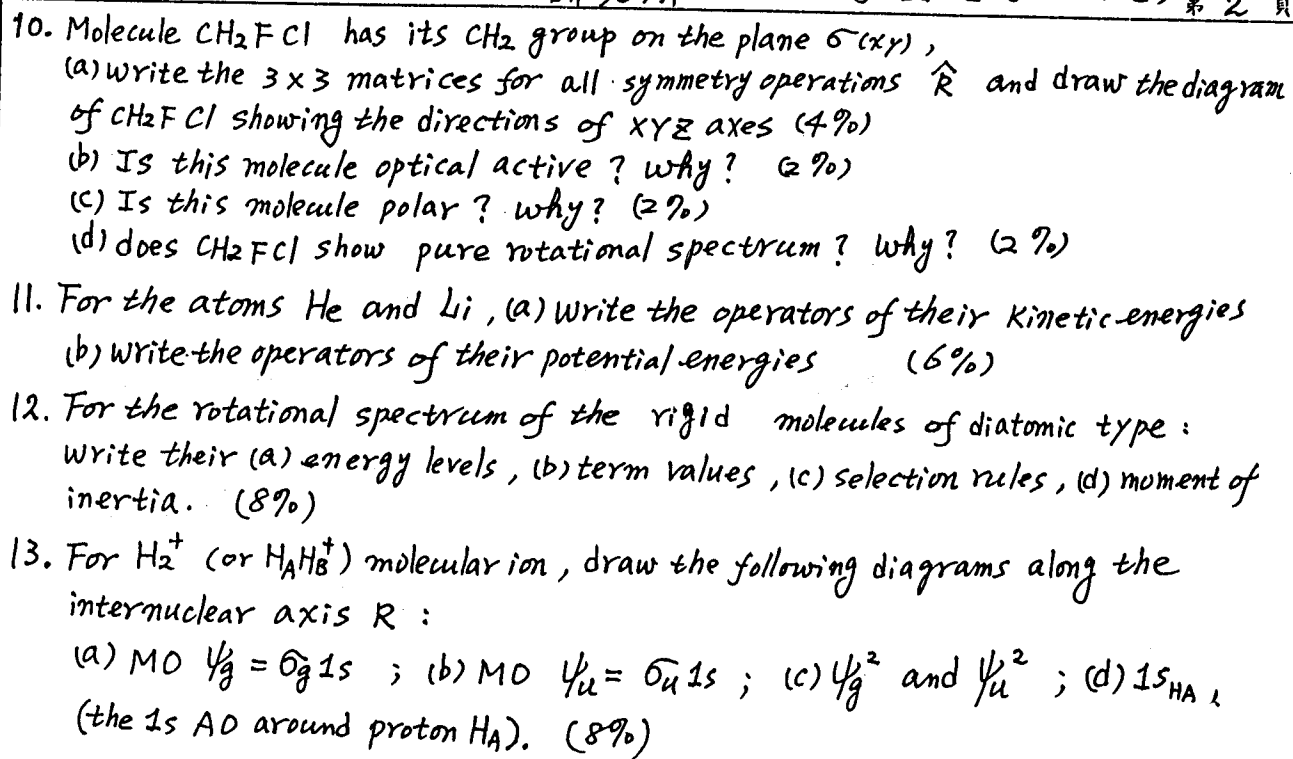 第 2 頁
10. Molecule CH₂FCl has its CH₂ group on the plane σ(xy),
(a) write the 3×3 matrices for all symmetry operations R̂ and draw the diagram
of CH₂FCl showing the directions of XYZ axes (4%)
(b) Is this molecule optical active? why? (2%)
(c) Is this molecule polar? why? (2%)
(d) does CH₂FCl show pure rotational spectrum? why? (2%)
11. For the atoms He and Li, (a) write the operators of their Kinetic energies
(b) write the operators of their potential energies (6%)
12. For the rotational spectrum of the rigid molecules of diatomic type:
write their (a) energy levels, (b) term values, (c) selection rules, (d) moment of
inertia. (8%)
13. For H₂⁺ (or HAHB⁺) molecular ion, draw the following diagrams along the
internuclear axis R:
(a) MO ψg = σg1s ; (b) MO ψu = σu1s ; (c) ψg² and ψu² ; (d) 1sHA,
(the 1s AO around proton HA). (8%)